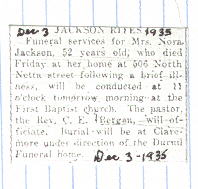 Dec 3 JACKSON RITES 1935
Funeral services for Mrs. Nora
Jackson, 52 years old, who died
Friday at her home at 506 North
Netta street following a brief ill-
ness, will be conducted at 11
o'clock tomorrow morning at the
First Baptist church. The pastor,
the Rev. C. E. Bergen, will of-
ficiate. Burial will be at Clare-
more under direction of the
Funeral home. Dec 3-1935